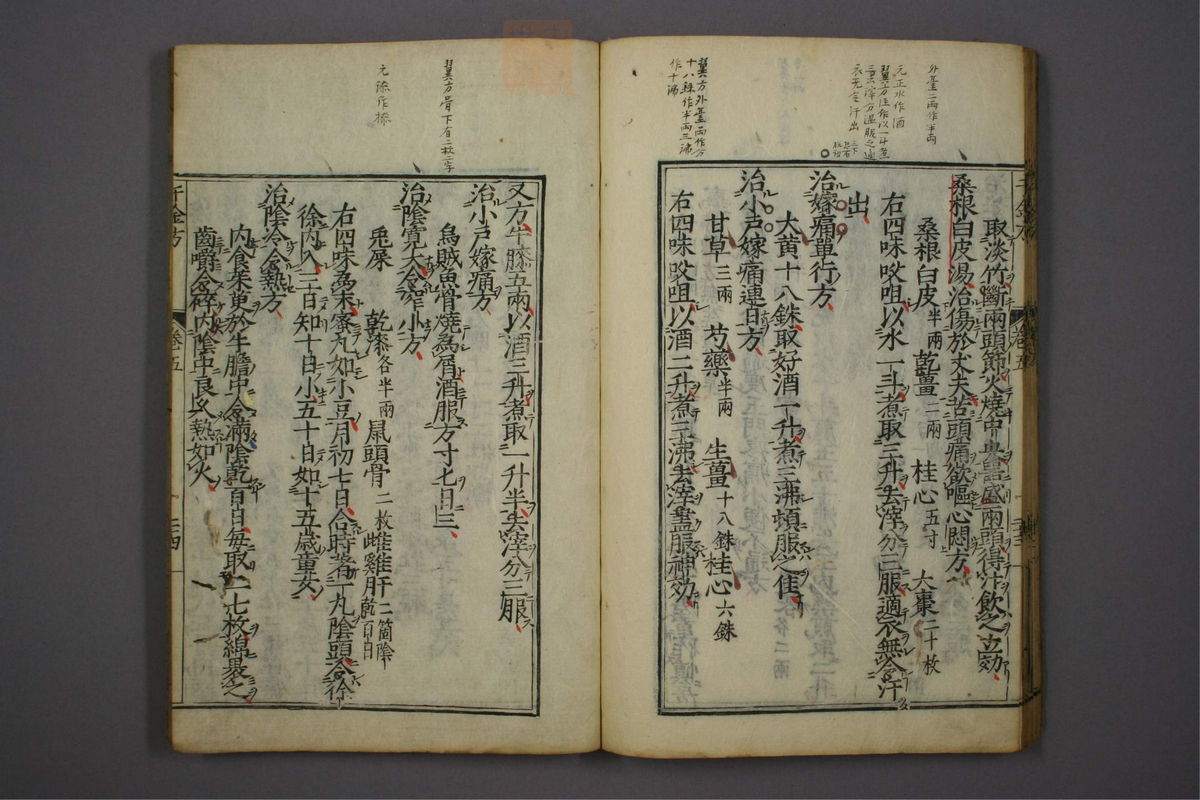 外臺二兩作半兩
元正水作酒
翼方注作以一斗煮
三升去滓分温服之適
衣无令汗出
翼方外臺兩作方
十八銖作半兩三沸
作十沸
取淡竹斷兩頭節火燒中央器盛兩頭得汁飲之立効
桑根白皮湯治傷於丈夫苦頭痛欲嘔心悶方
桑根白皮半兩 乾薑二兩 桂心五寸 大棗二十枚
右四味㕮咀以水一斗煮取三升去滓分三服適衣無令汗
出
治嫁痛單行方
大黄十八銖取好酒一升煮三沸頓服之佳
治小戸嫁痛連日方
甘草三兩 芍藥半兩 生薑十八銖 桂心六銖
右四味㕮咀以酒二升煮三沸去滓盡服神効
千金方 卷五
翼方骨下有二枚二字
元漆作㯃
又方牛膝五兩以酒三升煮取一升半去滓分三服
治小戸嫁痛方
烏賊魚骨燒爲屑酒服方寸匕日三
治陰寛大令窄小方
兎屎 乾漆各半兩 鼠頭骨二枚 雌雞肝二箇陰乾百日
右四味爲末蜜丸如小豆月初七日合時著一丸陰頭令徐
徐内入三日知十日小五十日如十五歳童女
治陰冷令熱方
内食茱萸於牛膽中令滿陰乾百日毎取二七枚綿裹之
齒嚼令碎内陰中良久熱如火
千金方 卷五 二四